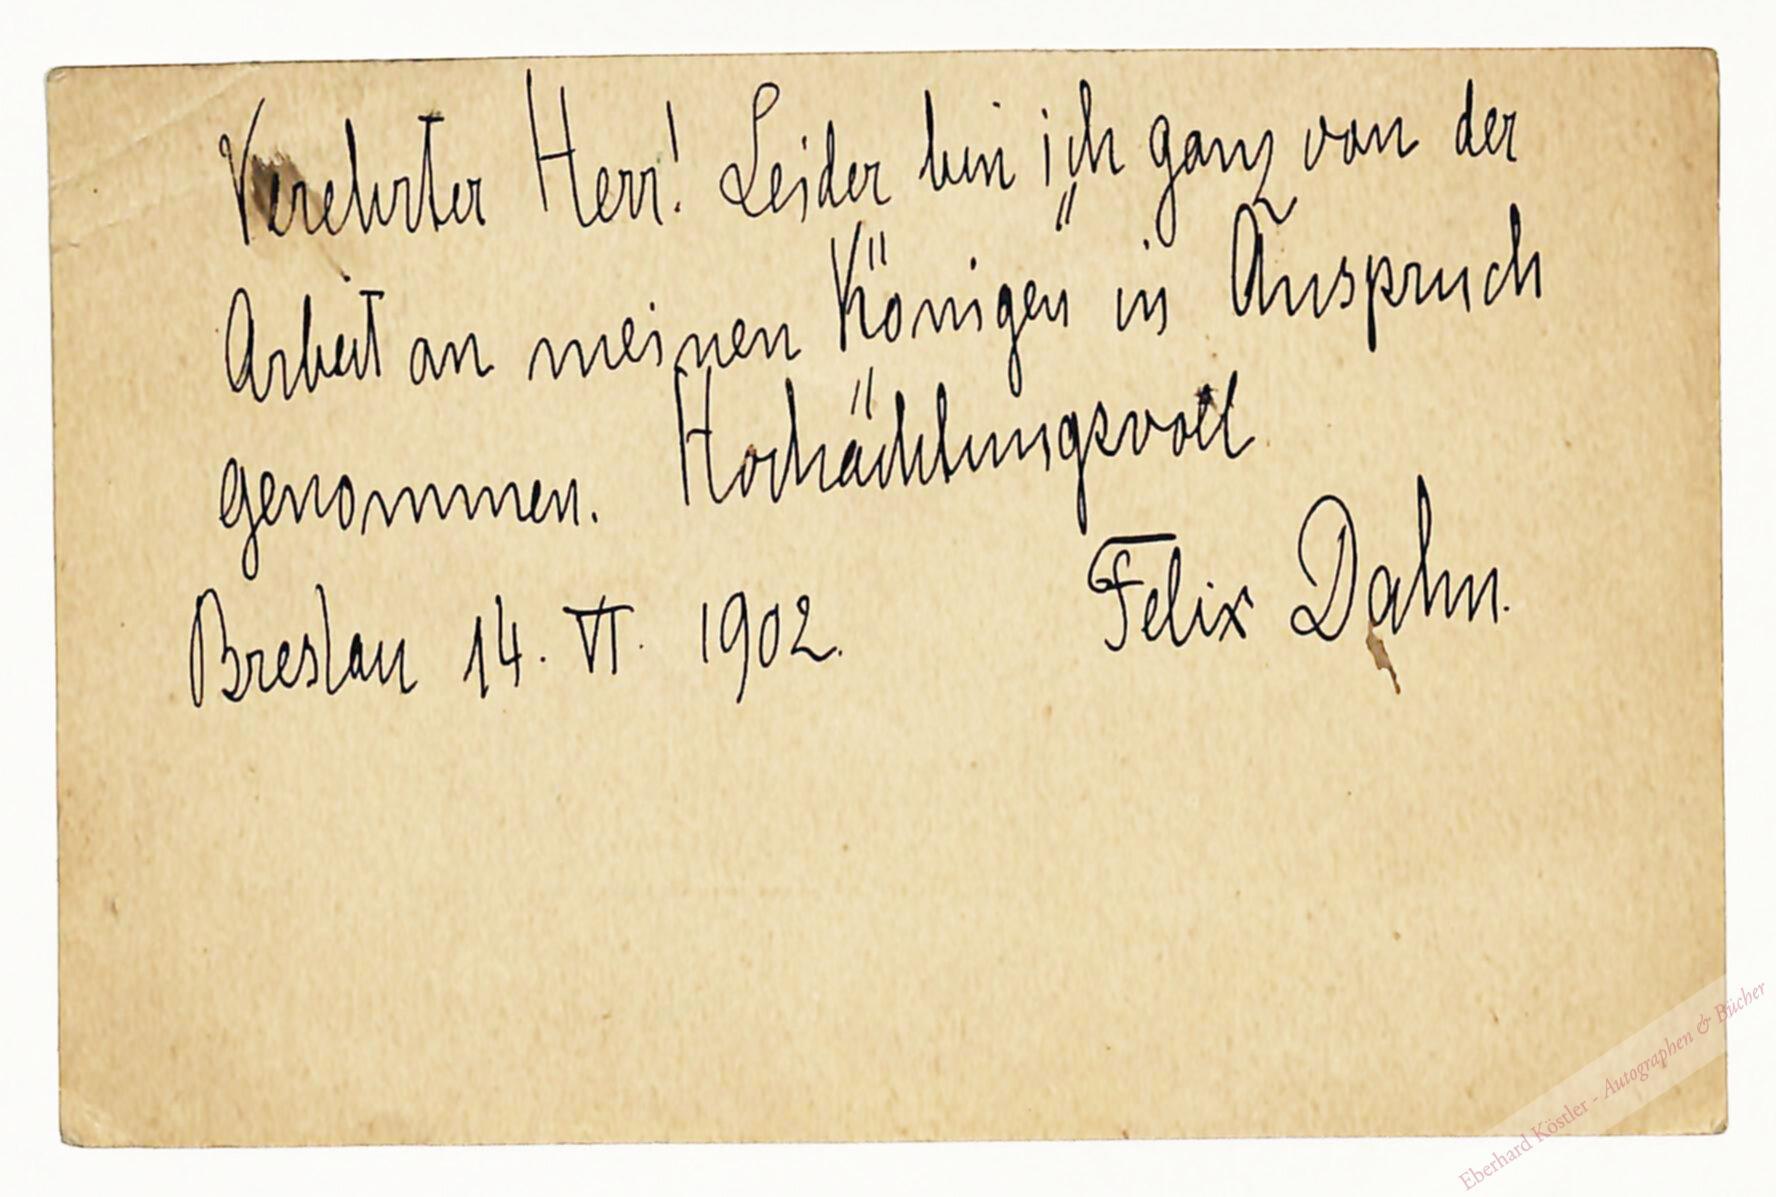 Verehrter Herr! Leider bin ich ganz von der
Arbeit an meinen Königen in Anspruch
genommen. Hochächtungsvoll
Felix Dahn.
Breslau 14. VI. 1902.
Eberhard Köstler - Autographen & Bücher